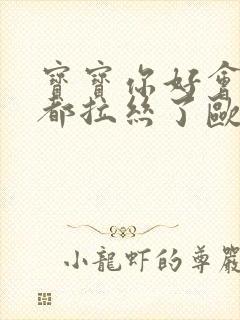 寶寶你好會
都拉絲了歐
小龍虾的尊嚴